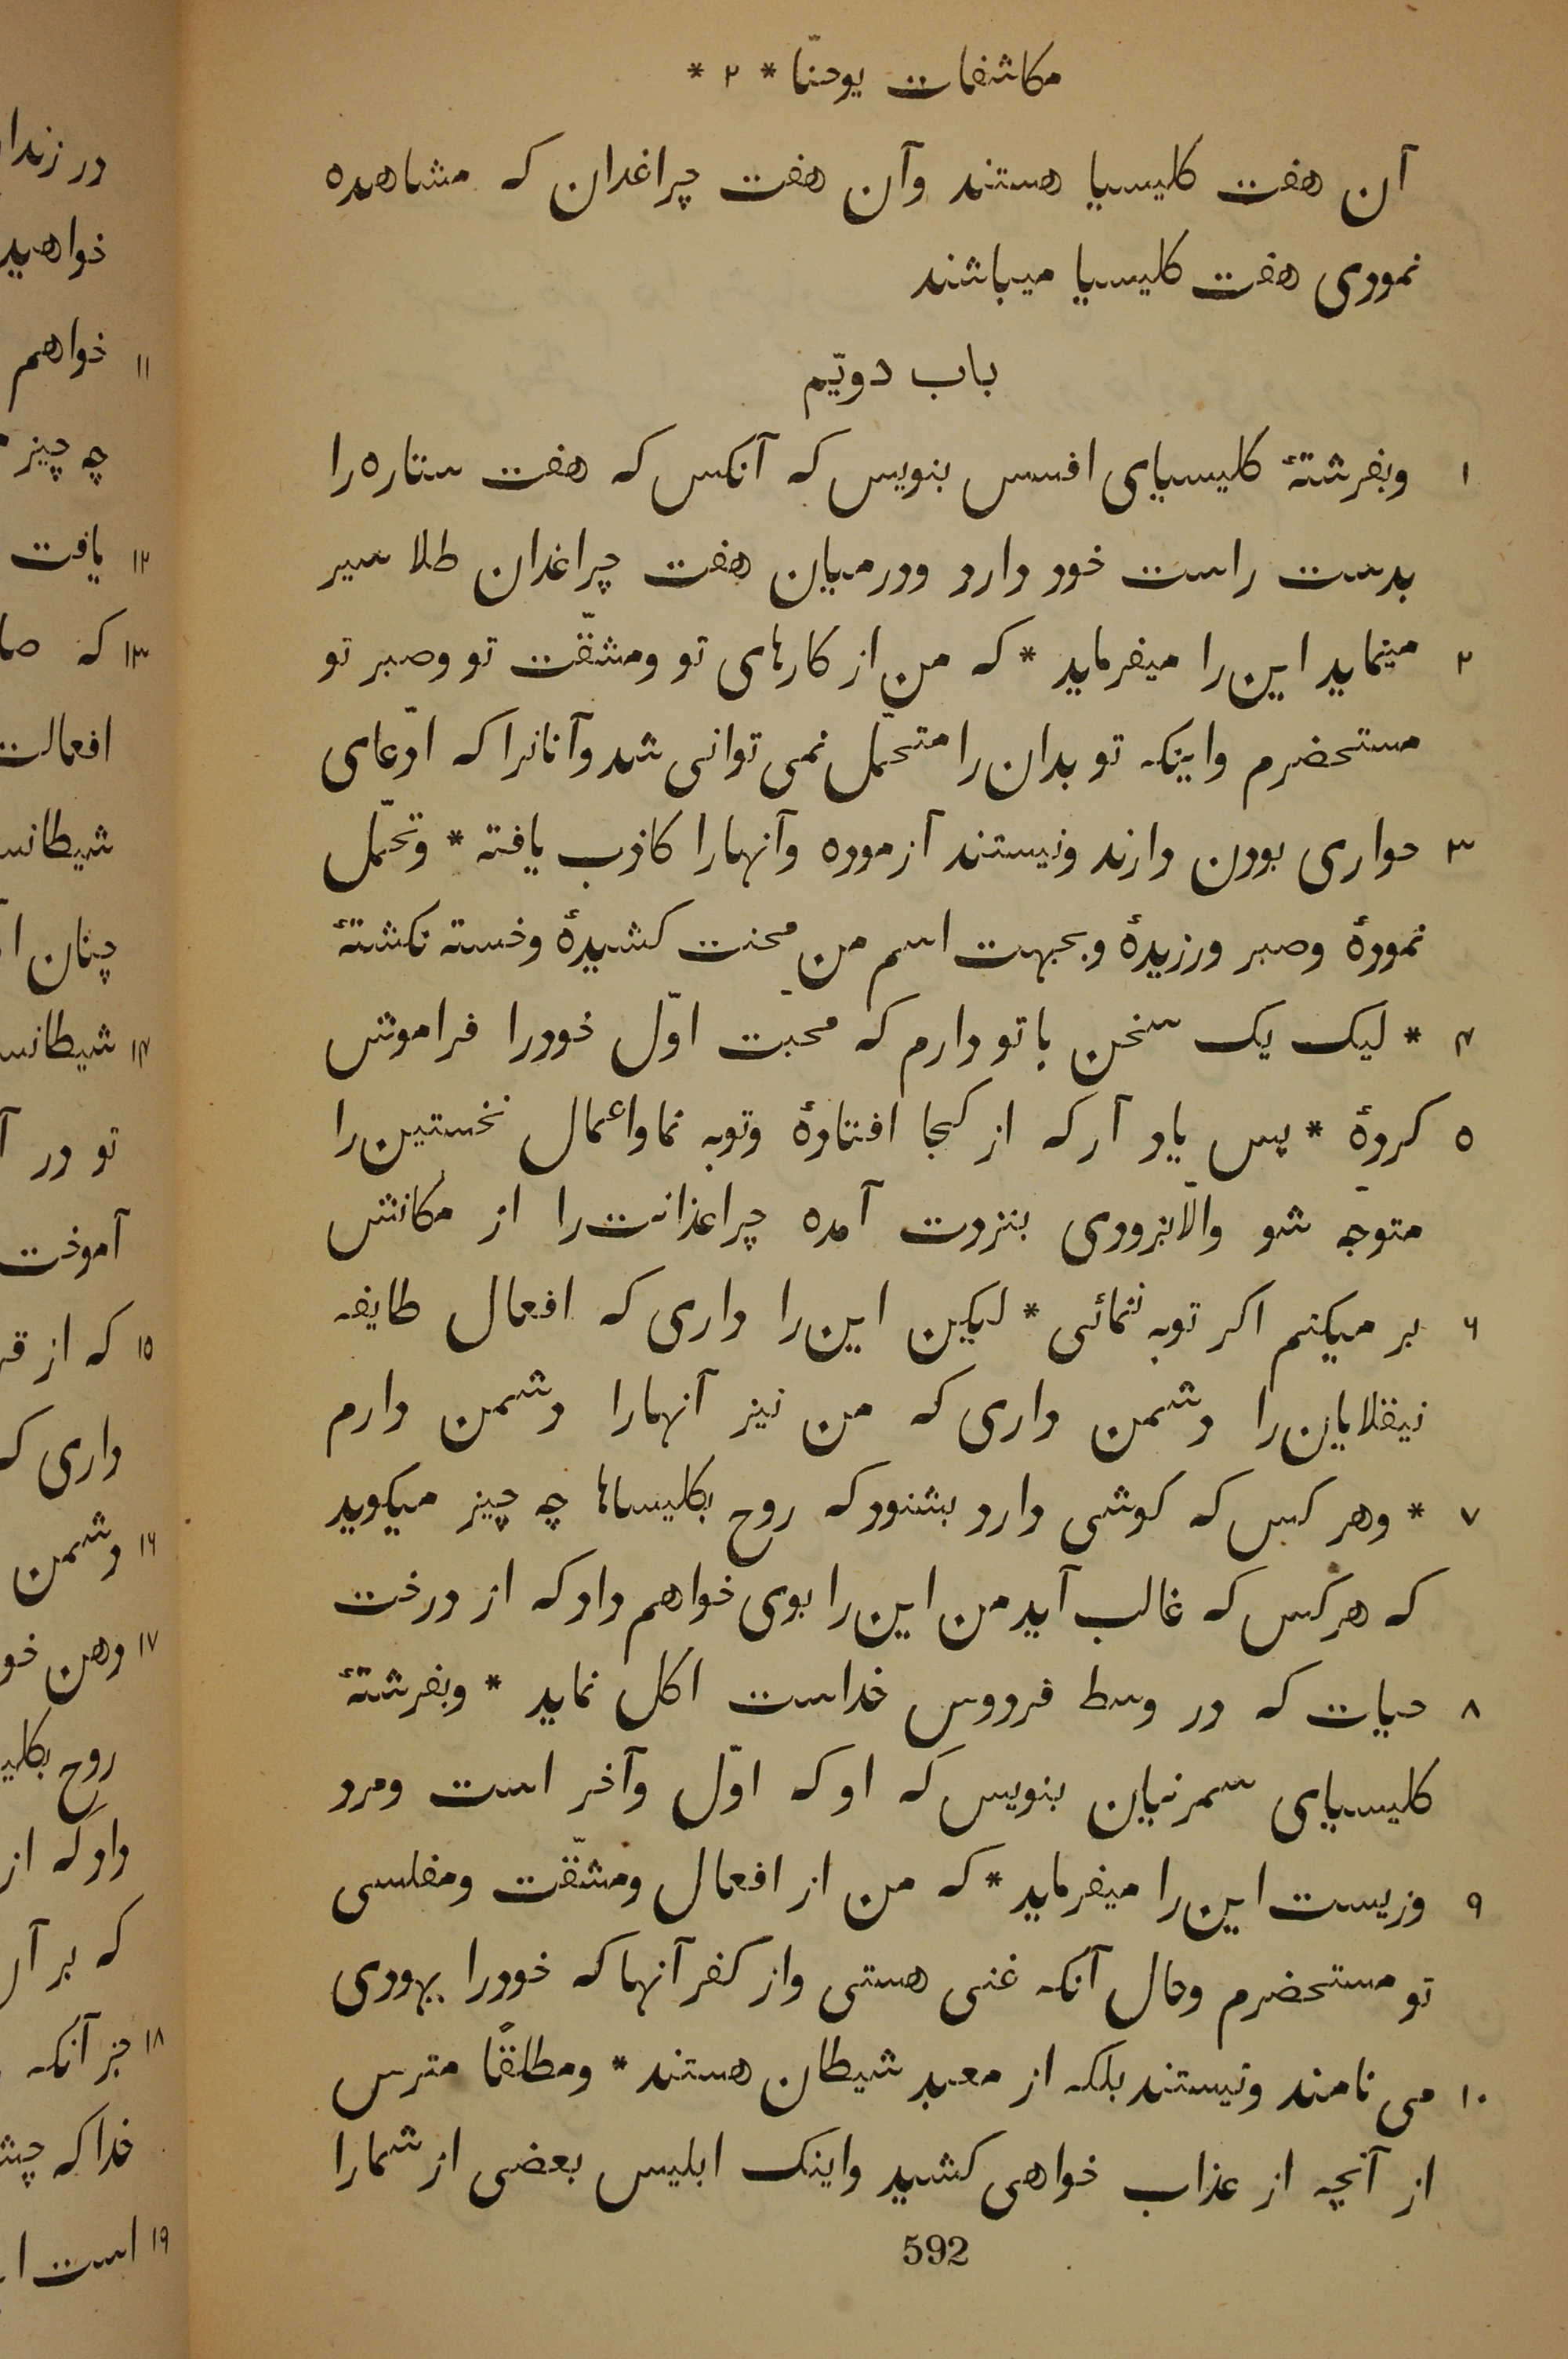 مکاشفات یوحنّا * ۲ *
آن هفت کلیسیا هستند وآن هفت چراغدان که مشاهده
نمودی هفت کلیسیا میباشند
باب دویّم
۱ وبفرشتهٔ کلیسیای افسس بنویس که آنکس که هفت ستاره را
بدست راست خود دارد ودرمیان هفت چراغدان طلا سیر
۲ مینماید این را میفرماید * که من از کارهای تو ومشقّت تو وصبر تو
مستحضرم واینکه تو بدان را متحمّل نمی توانی شد وآنانرا که ادّعای
۳ حواری بودن دارند ونیستند آزموده وآنهارا کاذب یافته * وتحمّل
نمودهٔ وصبر ورزیدهٔ وبجهت اسم من محنت کشیدهٔ وخسته نکشتهٔ
۴ * لیک یک سخن با تو دارم که محبّت اوّل خودرا فراموش
۵ کردهٔ * پس یاد آر که از کجا افتادهٔ وتوبه نما واعمال نخستین را
متوجّه شو والّا بزودی بنزدت آمده چراغدانت را از مکانش
۶ بر میکنم اکر توبه ننمائی * لیکن این را داری که افعال طایفه
نیقلایان را دشمن داری که من نیز آنهارا دشمن دارم
۷ * وهر کس که کوشی دارد بشنود که روح بکلیساها چه چیز میکوید
که هر کس که غالب آید من این را بوی خواهم داد که از درخت
۸ حیات که در وسط فردوس خداست اکل نماید * وبفرشتهٔ
کلیسیای سمرنیان بنویس که او که اوّل وآخر است ومرد
۹ وزیست این را میفرماید * که من از افعال ومشقّت ومفلسی
تو مستحضرم وحال آنکه غنی هستی واز کفر آنها که خودرا یهودی
۱۰ می نامند ونیستند بلکه از معبد شیطان هستند * ومطلقًا مترس
از آنچه از عذاب خواهی کشید واینک ابلیس بعضی از شمارا
592
در زندا
خواهید
۱۱ خواهم
چه چیز
۱۲ یافت
۱۳ که
افعالت
چنان
تو در
آموخت
۱۵ که از
داری که
۱۶ دشمن
۱۷ وهن خو
داد که از
که بر آن
۱۸ جز آنکه
خدا که
۱۹ است